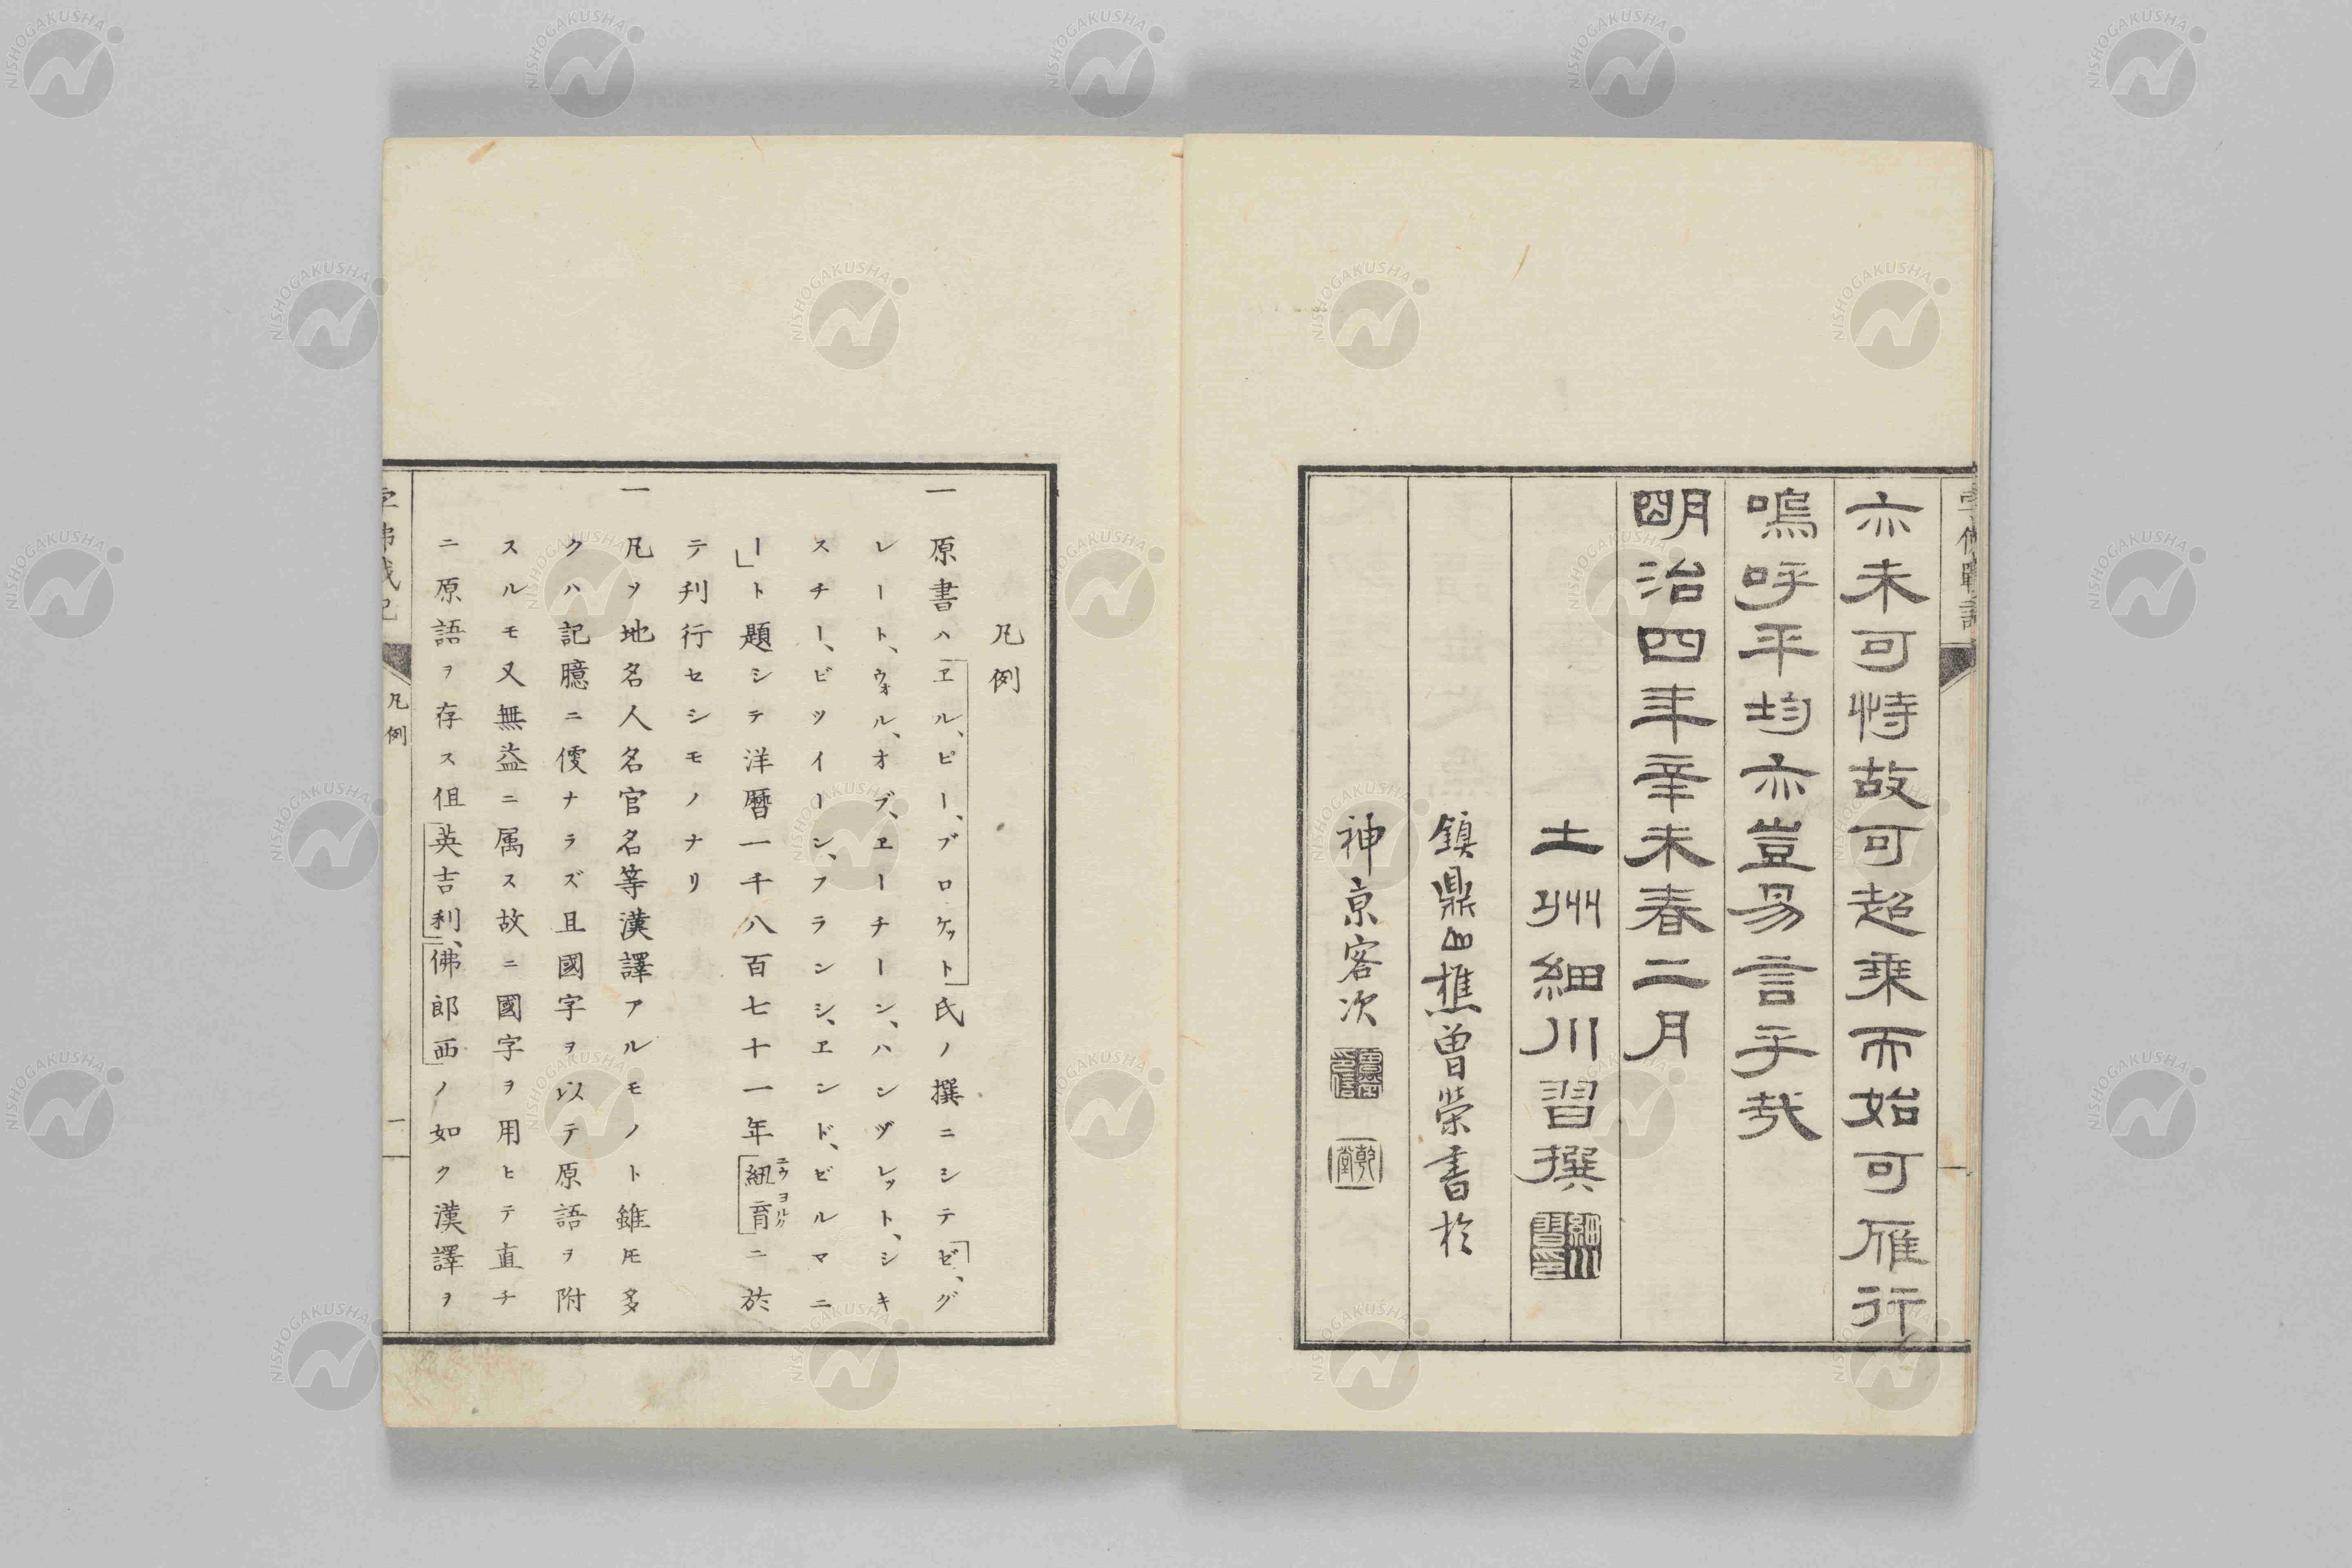 亦未可恃故可超乘而始可雁行
嗚呼平均亦豈易言乎哉
明治四年辛未春二月
土州細川習撰
鎮鼎山樵曽榮書於
神京客次
凡例
一原書ハ「ヱル、ピー、ブロケット」氏ノ撰ニシテ「ゼ、グ
レート、ウォル、オブ、ヱーチーン、ハンヅレット、シキ
スチー、ビツイーン、フランシ、ヱンド、ゼルマニ
ー」ト題シテ洋曆一千八百七十一年「紐育」ニ於
ニウヨルク
テ刋行セシモノナリ
一凡ソ地名人名官名等漢譯アルモノト雖𪜈多
クハ記臆ニ便ナラズ且國字ヲ以テ原語ヲ附
スルモ又無益ニ属ス故ニ國字ヲ用ヒテ直チ
ニ原語ヲ存ス但「英吉利」、「佛郎西」ノ如ク漢譯ヲ
凡例
一
NISHOGAKUSHA